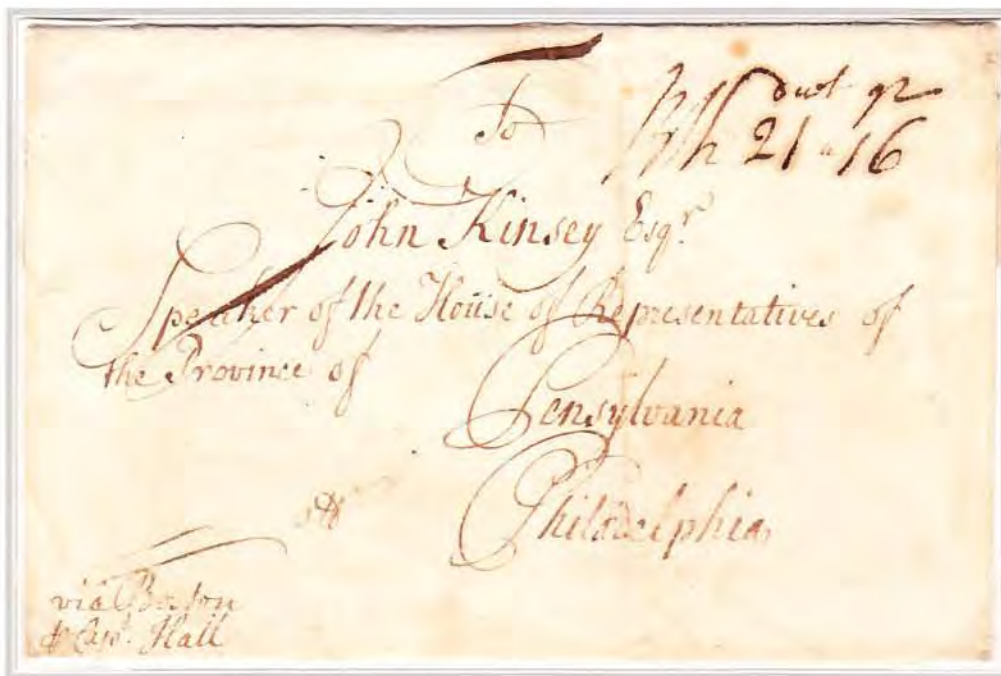 To
dwt gr
Sh 21 " 16
John Kinsey Esqr.
Speaker of the House of Representatives of
the Province of
Pensylvania
Philadelphia
via Boston
Capt. Hall